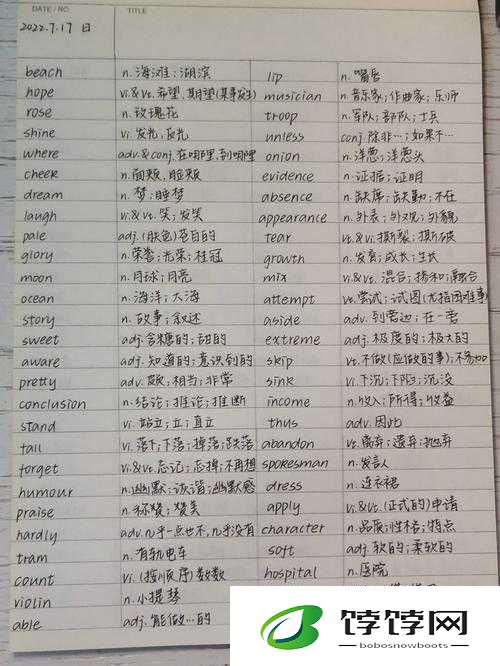 DATE / NO. TITLE
2022.7.17 日
beach n. 海滩；湖滨 lip n. 嘴唇
hope vi.&vt. 希望,期望(某事发生) musician n. 音乐家；作曲家；乐师
rose n. 玫瑰花 troop n. 军队；部队；士兵
shine vi 发光,反光 unless conj. 除非…；如果不…
where adv.&conj. 在哪里,到哪里 onion n. 洋葱；洋葱头
cheek n. 面颊,脸颊 evidence n. 证据；证明
dream n. 梦；睡梦 absence n. 缺席；缺勤；不在
laugh vi.&vt. 笑；发笑 appearance n. 外表；外观；外貌
pale adj. (肤色)苍白的 tear vt.&vi. 撕裂；撕破
glory n. 荣誉；光荣；桂冠 growth n. 发育；成长；生长
moon n. 月球；月亮 mix vi.&vt. 混合；搀和；融合
ocean n. 海洋；大海 attempt vt. 尝试；试图(尤指困难事)
story n. 故事；叙述 aside adv. 到旁边；在一旁
sweet adj. 含糖的；甜的 extreme adj. 极度的；极大的
aware adj. 知道的；意识到的 skip vt. 不做(应做的事)；不参加
pretty adv. 颇,相当；非常 sink vi. 下沉；下陷；沉没
conclusion n. 结论；推论；推断 income n. 收入；所得；收益
stand vi. 站立；立；直立 thus adv. 因此
fall vi. 落下；下落；掉落；跌落 abandon vt. 离弃；遗弃；抛弃
forget vi.&vt. 忘记；忘掉；不再想 spokesman n. 发言人
humour n. 幽默；诙谐；幽默感 dress n. 连衣裙
praise n. 称赞；赞美 apply vi.&vt. (正式的)申请
hardly adv. 几乎一点也不,几乎没有 character n. 品质；性格；特点
tram n. 有轨电车 soft adj. 软的；柔软的
count vi. (按顺序)数数 hospital n. 医院
violin n. 小提琴
able adj. 能做…的
饽饽网
bobosnowboots.com